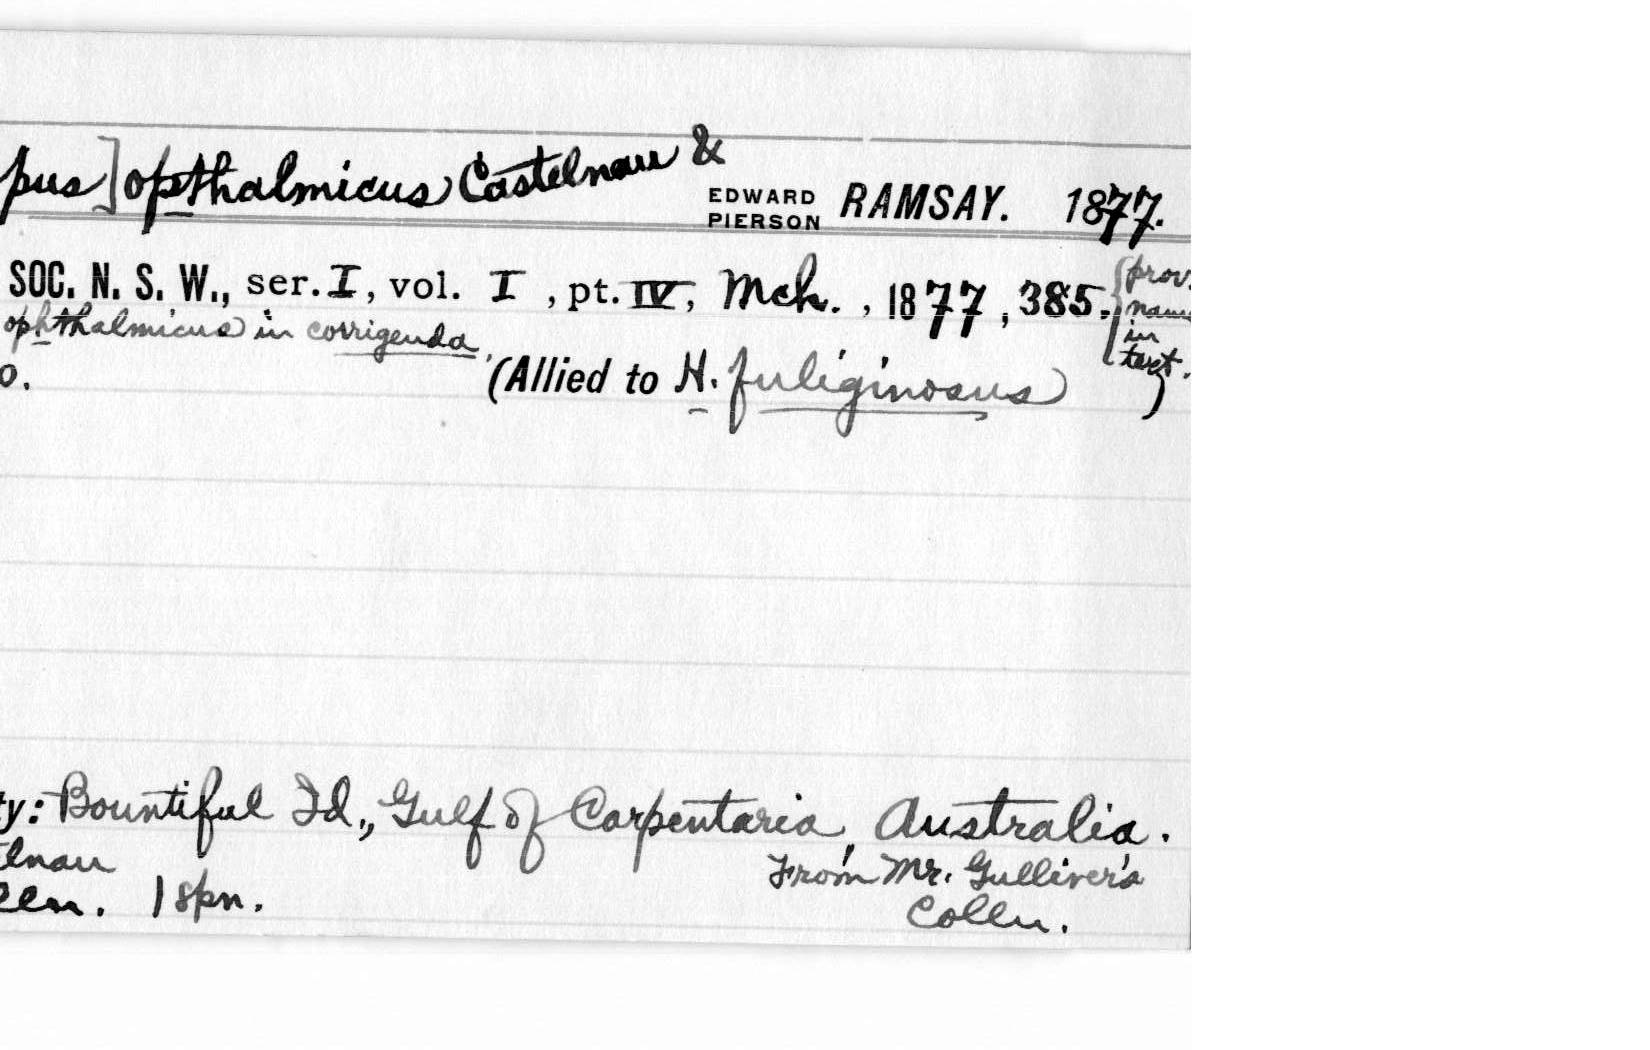 pus] opthalmicus Castelnau &
EDWARD PIERSON RAMSAY. 1877.
SOC. N. S. W., ser. I, vol. I, pt. IV, Mch., 1877, 385. {prov. name in text.
ophthalmicus in corrigenda.
o. (Allied to H. fuliginosus)
ty: Bountiful Id., Gulf of Carpentaria, Australia.
elnau From Mr. Gulliver's
1 spn. Colln.